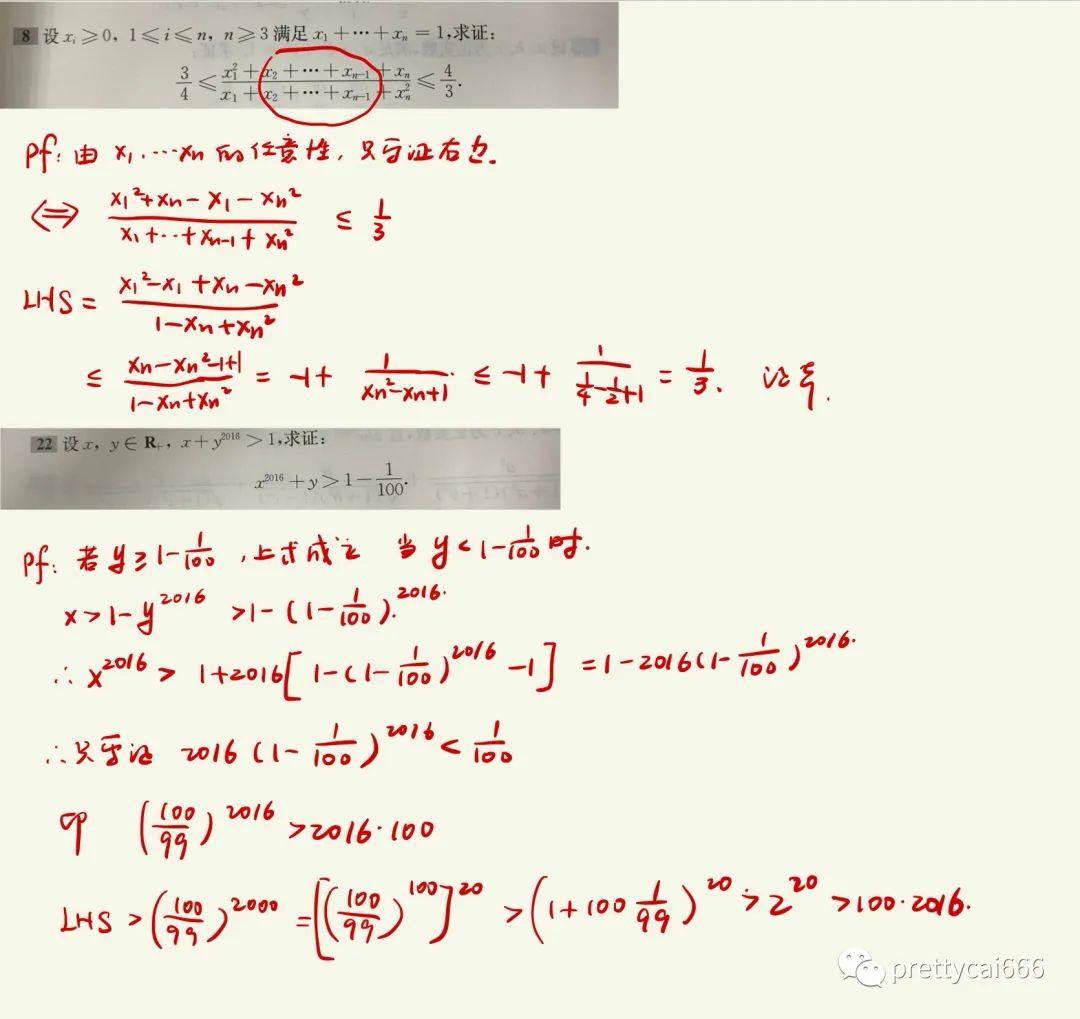 8 设 xᵢ≥0, 1≤i≤n, n≥3 满足 x₁+⋯+xₙ=1,求证:
3/4 ≤ (x₁²+x₂+⋯+xₙ₋₁+xₙ)/(x₁+x₂+⋯+xₙ₋₁+xₙ²) ≤ 4/3.
pf: 由 x₁,⋯xₙ 的任意性, 只需证右边.
⇔ (x₁²+xₙ-x₁-xₙ²)/(x₁+⋯+xₙ₋₁+xₙ²) ≤ 1/3
LHS = (x₁²-x₁+xₙ-xₙ²)/(1-xₙ+xₙ²)
≤ (xₙ-xₙ²-1+1)/(1-xₙ+xₙ²) = -1+ 1/(xₙ²-xₙ+1) ≤ -1+ 1/(1/4-1/2+1) = 1/3. 证毕.
22 设 x, y∈R₊, x+y²⁰¹⁶>1,求证:
x²⁰¹⁶+y>1-1/100.
pf: 若 y≥1-1/100, 上式成立 当 y<1-1/100 时.
x>1-y²⁰¹⁶ >1-(1-1/100)²⁰¹⁶.
∴ x²⁰¹⁶ > 1+2016[1-(1-1/100)²⁰¹⁶-1] =1-2016(1-1/100)²⁰¹⁶.
∴只需证 2016(1-1/100)²⁰¹⁶<1/100
即 (100/99)²⁰¹⁶>2016·100
LHS >(100/99)²⁰⁰⁰ =[(100/99)¹⁰⁰]²⁰ >(1+100 1/99)²⁰>2²⁰>100·2016.
prettycai666